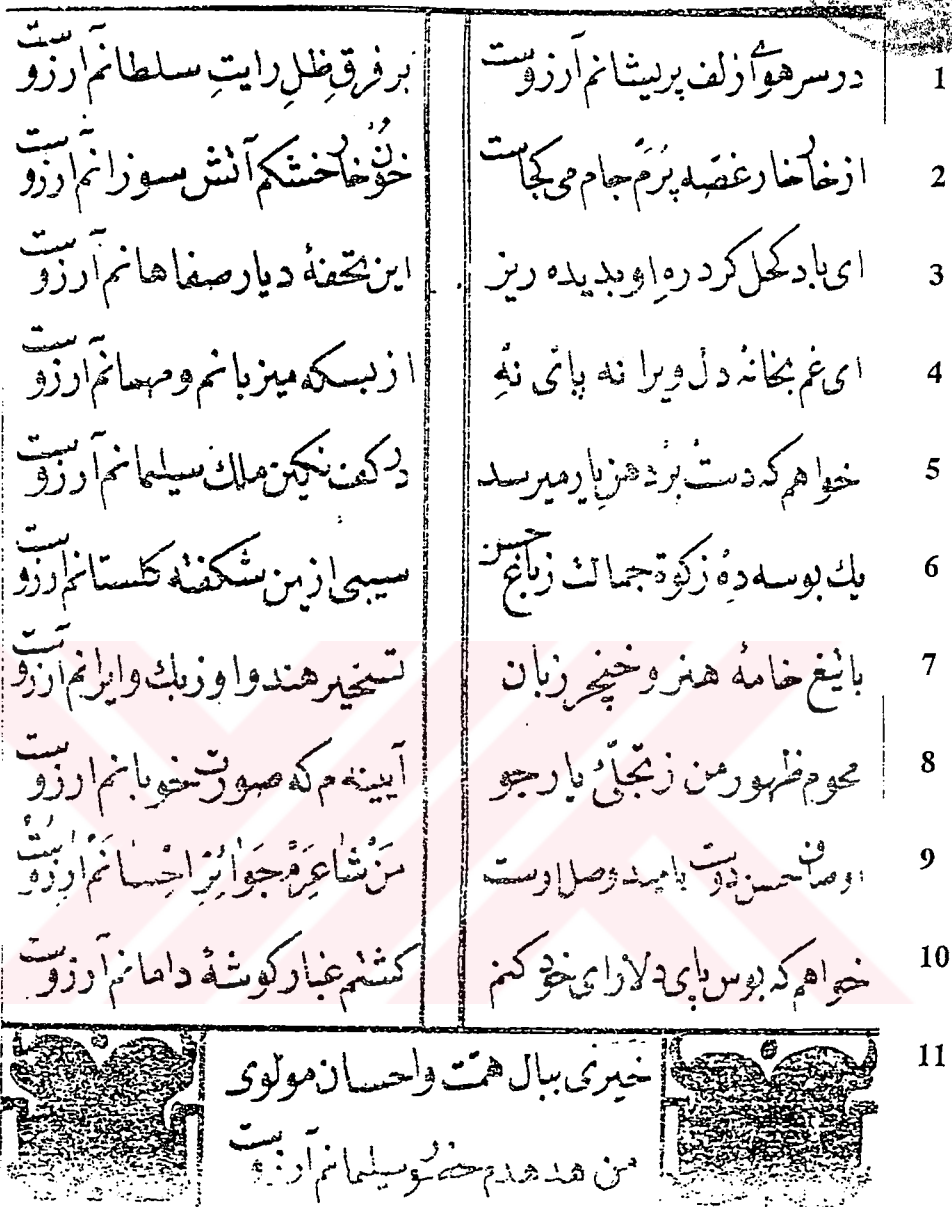 1 درسر هوای زلف پریشانم آرزوست بر فرق ظلِ رایتِ سلطانم آرزوست
2 از خار خار غصه پرم جام می کجاست خون خار خشکم آتش سوزانم آرزوست
3 ای باد کحل کرد رهِ او بدیده ریز این تحفهٔ دیار صفاهانم آرزوست
4 ای غم بخانهٔ دل ویرانه پای نه از بسکه میزبانم و مهمانم آرزوست
5 خواهم که دست برْ دهن یار میرسد در کف نکین ملك سلیمانم آرزوست
6 یك بوسه دهْ زکوة جمالت ز باغ حسن سیبی ازین شکفته کلستانم آرزوست
7 باتیغ خامهٔ هنر و خنجر زبان تسخیر هند و اوزبك و ایرانم آرزوست
8 محوم ظهور من ز تجلّی یار جو آیینه م که صورت خوبانم ارزوست
9 اوصاف حسن دوست بامید وصل اوست مَنْ شاعِرَمْ جَوائِز اِحْسانَم آرْزُوسْتْ
10 خواهم که بوس پای دلارای خود کنم کشتم غبار کوشهٔ دامانم آرزوست
11 خیری ببال همّت و احسان مولوی
من هدهدم سلیمانم آرزوست